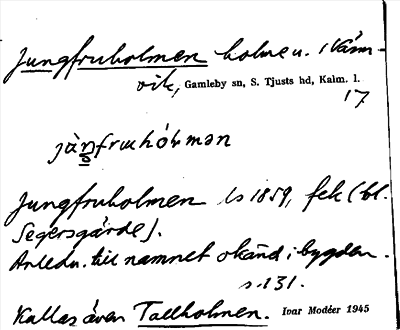 Jungfruholmen holme n. i Väm-
vik, Gamleby sn, S. Tjusts hd, Kalm. l.
17
Jungfruholmen Ls 1859, fek (bl.
Segersgärde).
Anledn. till namnet okänd i bygden.
s. 131.
Kallas även Tallholmen. Ivar Modéer 1945